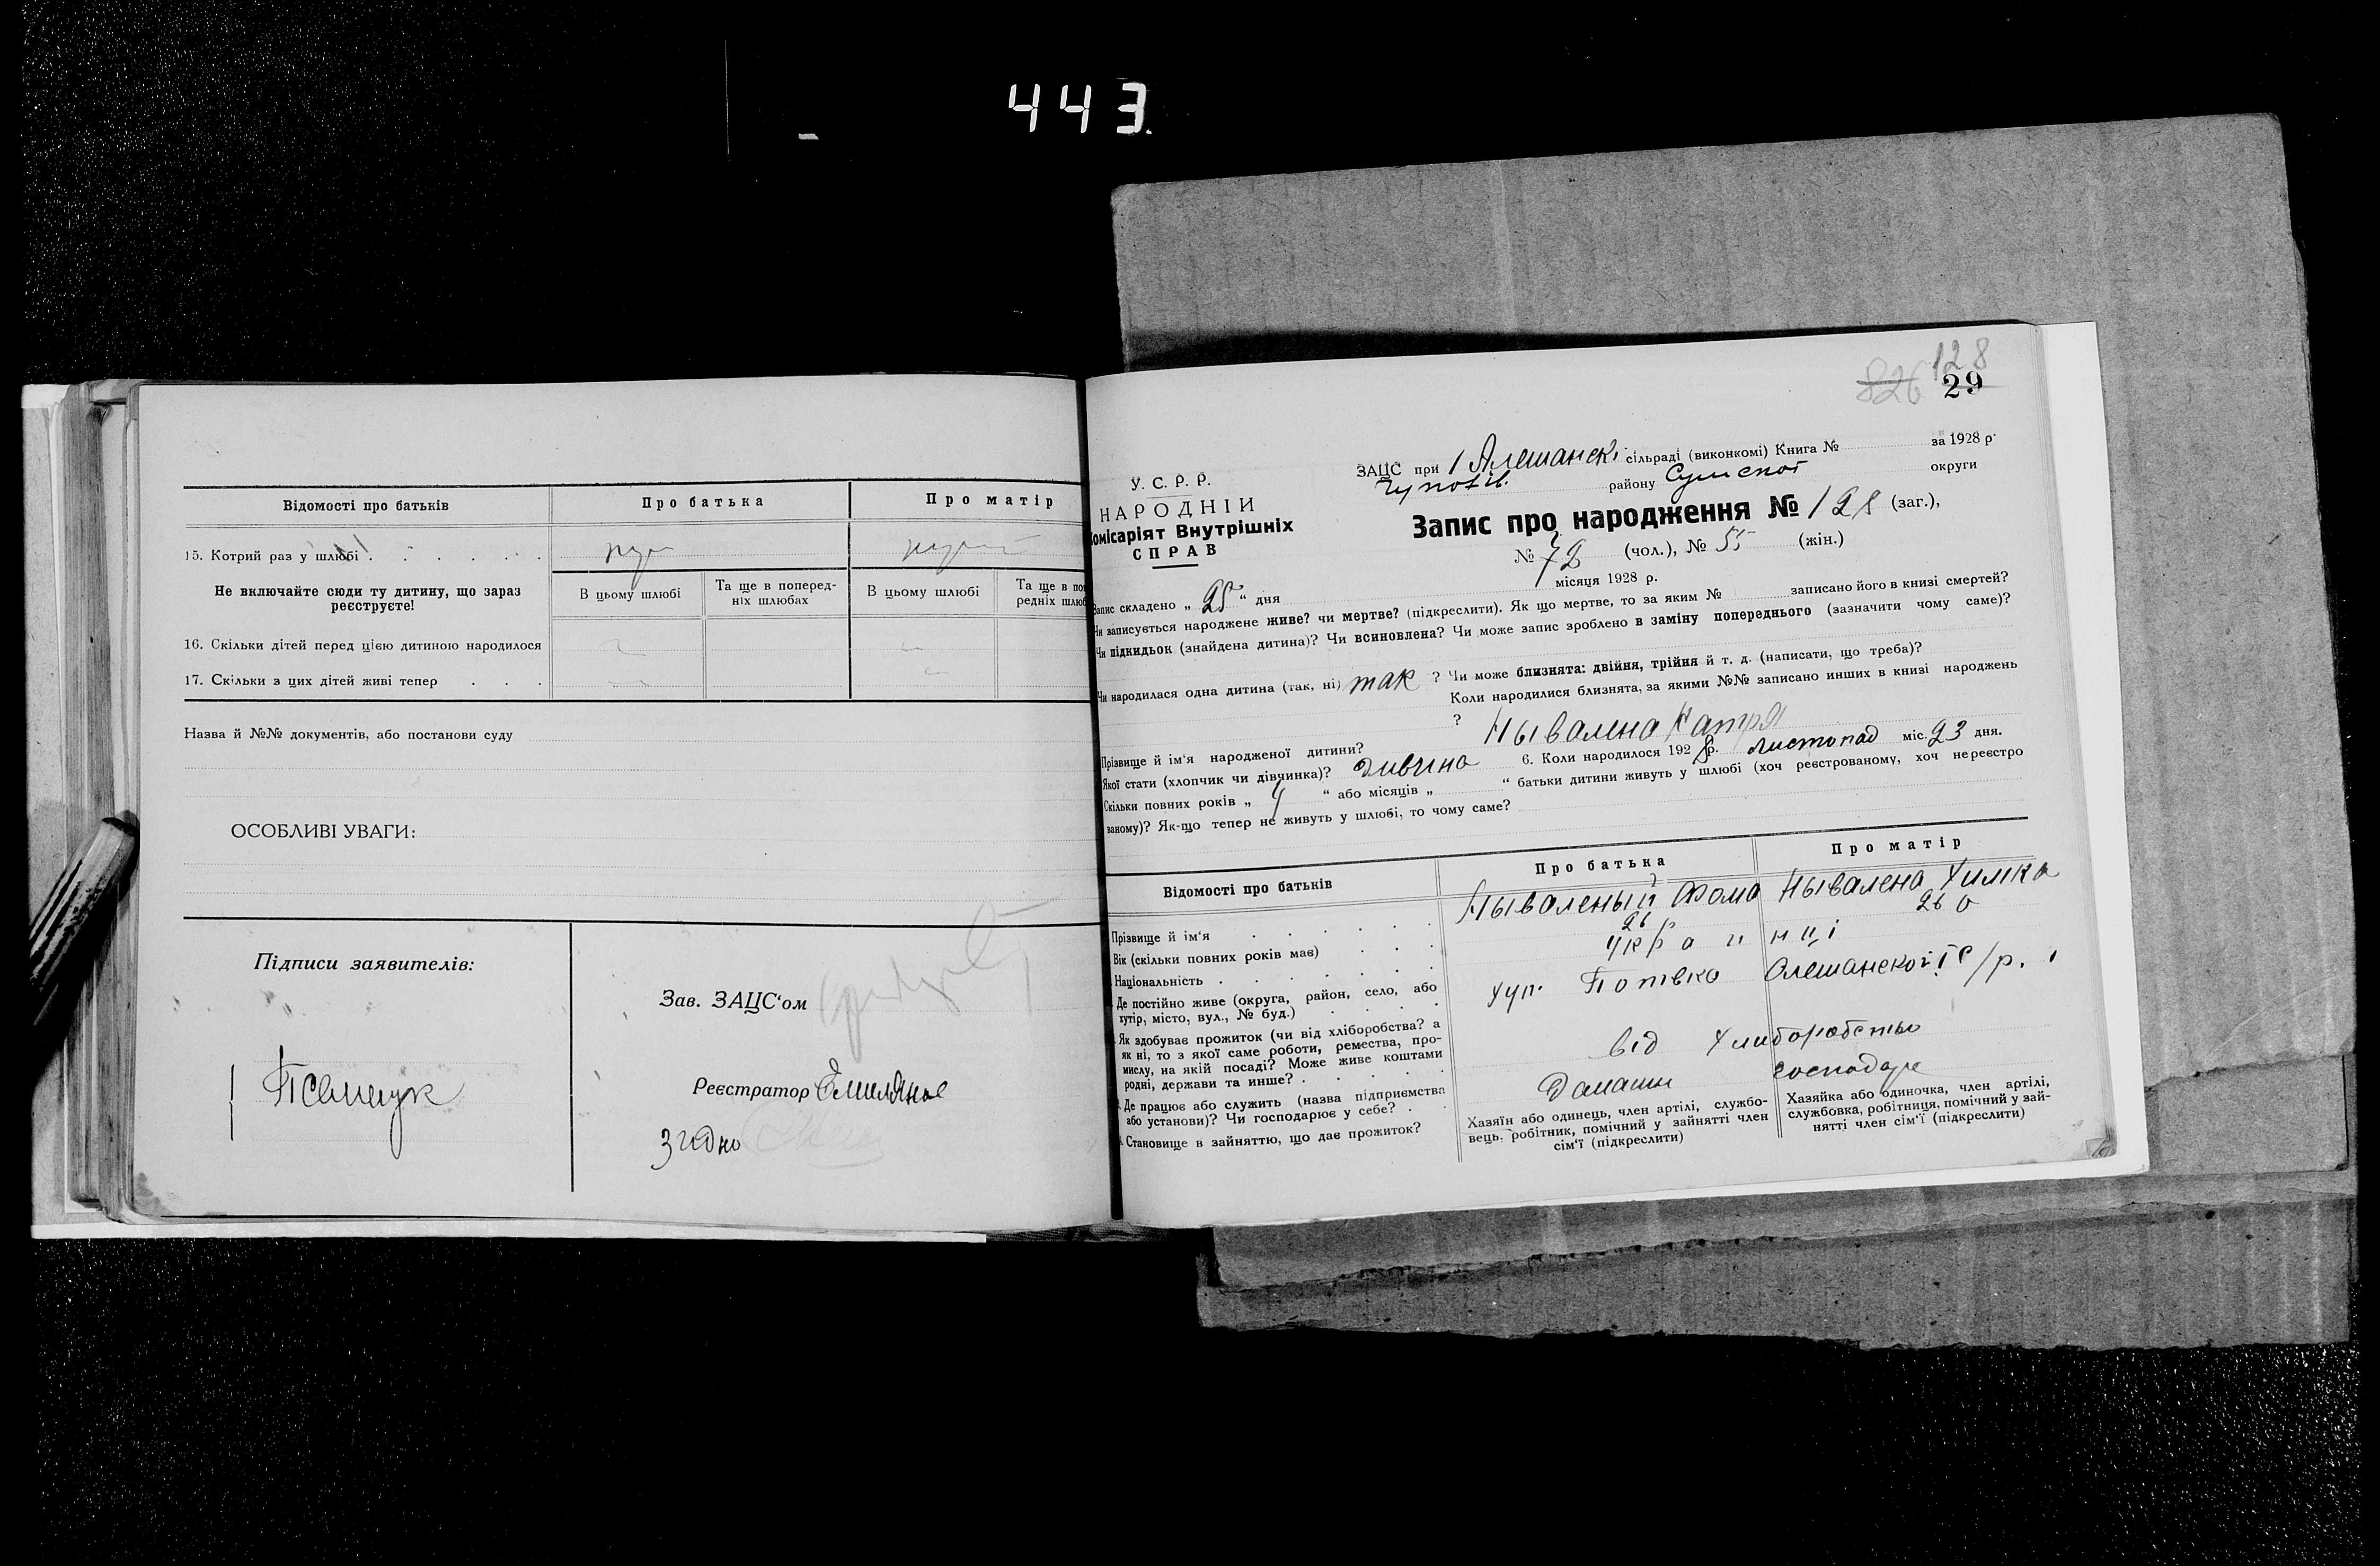 443.
Відомості про батьків
Про батька
Про матір
15. Котрий раз у шлюбі
Не включайте сюди ту дитину, що зараз
реєструєте!
В цьому шлюбі
Та ще в поперед-
ніх шлюбах
В цьому шлюбі
Та ще в по
редніх шлюб
16. Скільки дітей перед цією дитиною народилося
17. Скільки з цих дітей живі тепер
Назва й №№ документів, або постанови суду
ОСОБЛИВІ УВАГИ:
Підписи заявителів:
Зав. ЗАЦС‘ом
Реєстратор
Згидно
826 128
29
У. С. Р. Р.
НАРОДНІЙ
омісаріят Внутрішніх
СПРАВ
ЗАЦС при 1 Алешанскі сільраді (виконкомі) Книга № за 1928 р.
району Сумской округи
Запис про народження № 128 (заг.),
№ 72 (чол.), № 55 (жін.)
Запис складено „ 25 “ дня місяця 1928 р.
Чи записується народжене живе? чи мертве? (підкреслити). Як що мертве, то за яким № записано його в книзі смертей?
Чи підкидьок (знайдена дитина)? Чи всиновлена? Чи може запис зроблено в заміну попереднього (зазначити чому саме)?
Чи народилася одна дитина (так, ні) так ? Чи може близнята: двійня, трійня й т. д. (написати, що треба)?
Коли народилися близнята, за якими №№ записано инших в книзі народжень
?
Прізвище й ім‘я народженої дитини? Нывалена Катря
Якої стати (хлопчик чи дівчинка)? Дивчина 6. Коли народилося 1928 р. листопад міс. 23 дня.
Скільки повних років „ 4 “ або місяців „ “ батьки дитини живуть у шлюбі (хоч реєстрованому, хоч нереєстро
ваному)? Як-що тепер не живуть у шлюбі, то чому саме?
Відомості про батьків
Про батька
Про матір
Прізвище й ім‘я
Нываленый Фома
Нывалена Химка
Вік (скільки повних років має)
26 р
26 р
Національність
українці
Де постійно живе (округа, район, село, або
хутір, місто, вул., № буд.)
хут. Потівка Олешанской І с/р.
Як здобуває прожиток (чи від хліборобства? а
як ні, то з якої саме роботи, ремества, про-
мислу, на якій посаді? Може живе коштами
родні, держави та инше?
від хлиборобство
Де працює або служить (назва підприємства
або установи)? Чи господарює у себе?
господарe
Становище в зайняттю, що дає прожиток?
Хазяїн або одинець, член артілі, службо-
вець, робітник, помічний у зайнятті член
сім‘ї (підкреслити)
Хазяйка або одиночка, член артілі,
службовка, робітниця, помічний у зай-
нятті член сім‘ї (підкреслити)